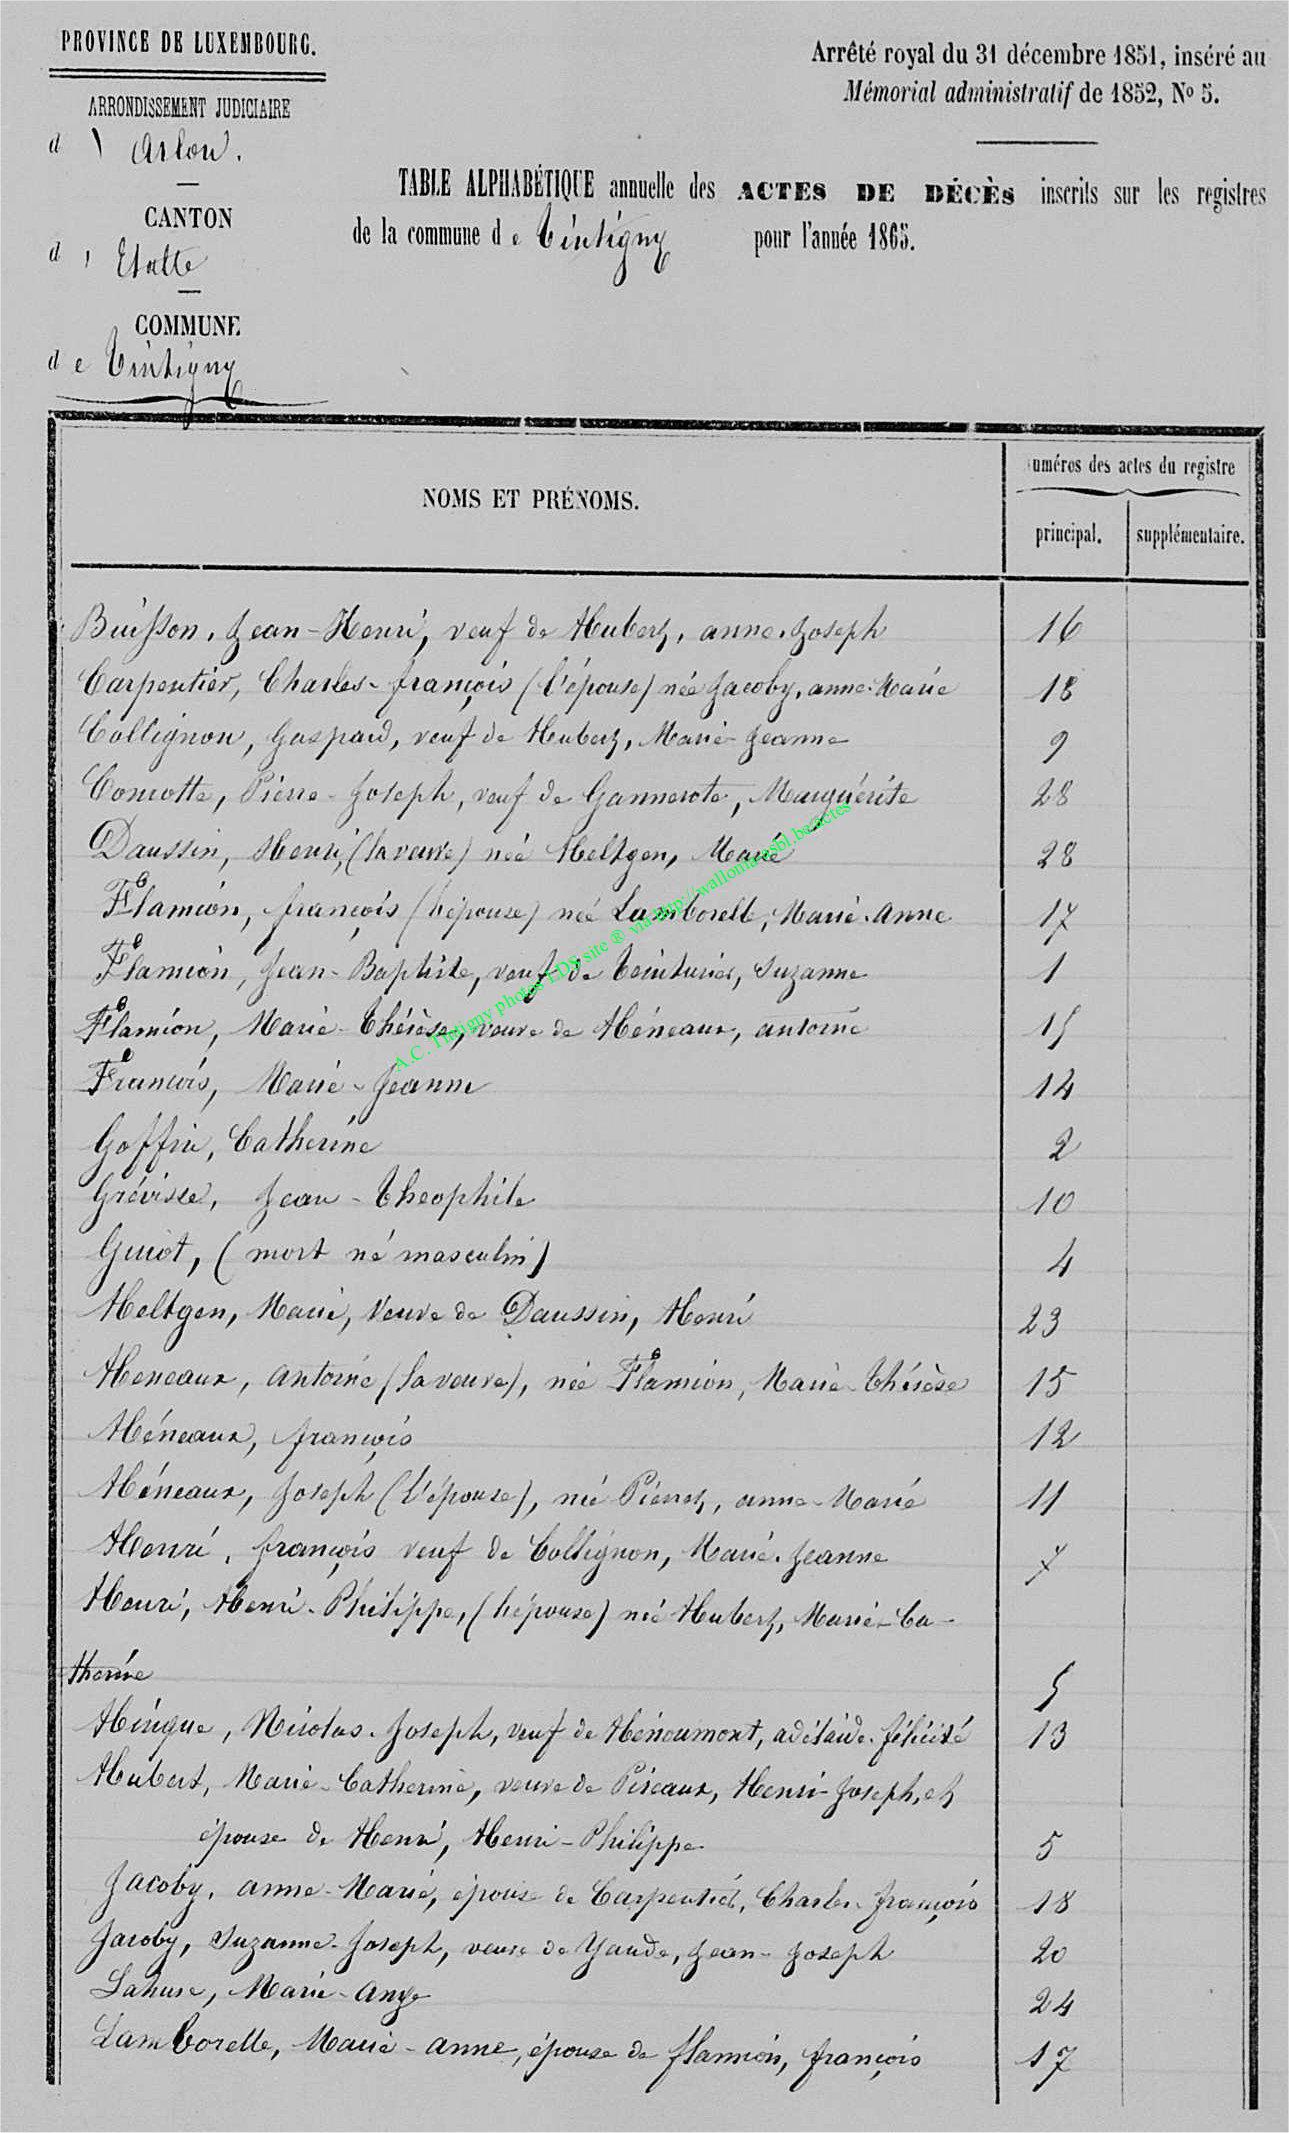 PROVINCE DE LUXEMBOURG.
Arrêté royal du 31 décembre 1851, inséré au
Mémorial administratif de 1852, No 5.
ARRONDISSEMENT JUDICIAIRE
d' Arlon.
CANTON
d' Etalle
COMMUNE
de Tintigny
TABLE ALPHABÉTIQUE annuelle des ACTES DE DÉCÈS inscrits sur les registres
de la commune de Tintigny pour l'année 1865.
NOMS ET PRÉNOMS.
uméros des actes du registre
principal. supplémentaire.
Buisson, Jean-Henri, veuf de Hubert, anne-Joseph 16
Carpentier, Charles-françois (l'épouse) née Jacoby, anne-Marie 18
Collignon, Gaspard, veuf de Hubert, Marie-Jeanne 9
Concotte, Pierre-Joseph, veuf de Gannerote, Marguérite 28
Daussin, Henri, (la veuve) née Heltgen, Marie 28
Flamion, françois (l'épouse) née Lamborelle, Marie-Anne 17
Flamion, Jean-Baptiste, veuf de Teinturier, Suzanne 1
Flamion, Marie-Thérèse, veuve de Héneaux, antoine 15
François, Marie-Jeanne 14
Goffin, Catherine 2
Grévisse, Jean-Theophile 10
Guiot, (mort né masculin) 4
Heltgen, Marie, Veuve de Daussin, Henri 23
Heneaux, antoine (la veuve), née Flamion, Marie-Thérèse 15
Héneaux, françois 12
Héneaux, Joseph (l'épouse), née Pierret, anne-Marie 11
Henri, françois veuf de Collignon, Marie-Jeanne 7
Henri, Henri-Philippe, (l'épouse) née Hubert, Marie-Ca-
therine 5
Hinque, Nicolas-Joseph, veuf de Hénoumont, adélaïde-félicité 13
Hubert, Marie-Catherine, veuve de Piseaux, Henri-Joseph, et
épouse de Henri, Henri-Philippe 5
Jacoby, anne-Marie, épouse de Carpentier, Charles-françois 18
Jacoby, Suzanne-Joseph, veuve de Yande, Jean-Joseph 20
Lahure, Marie-Ange 24
Lamborelle, Marie-anne, épouse de flamion, françois 17
A.C. Tintigny photos LDS site ® via http://wallonia-asbl.be/actes